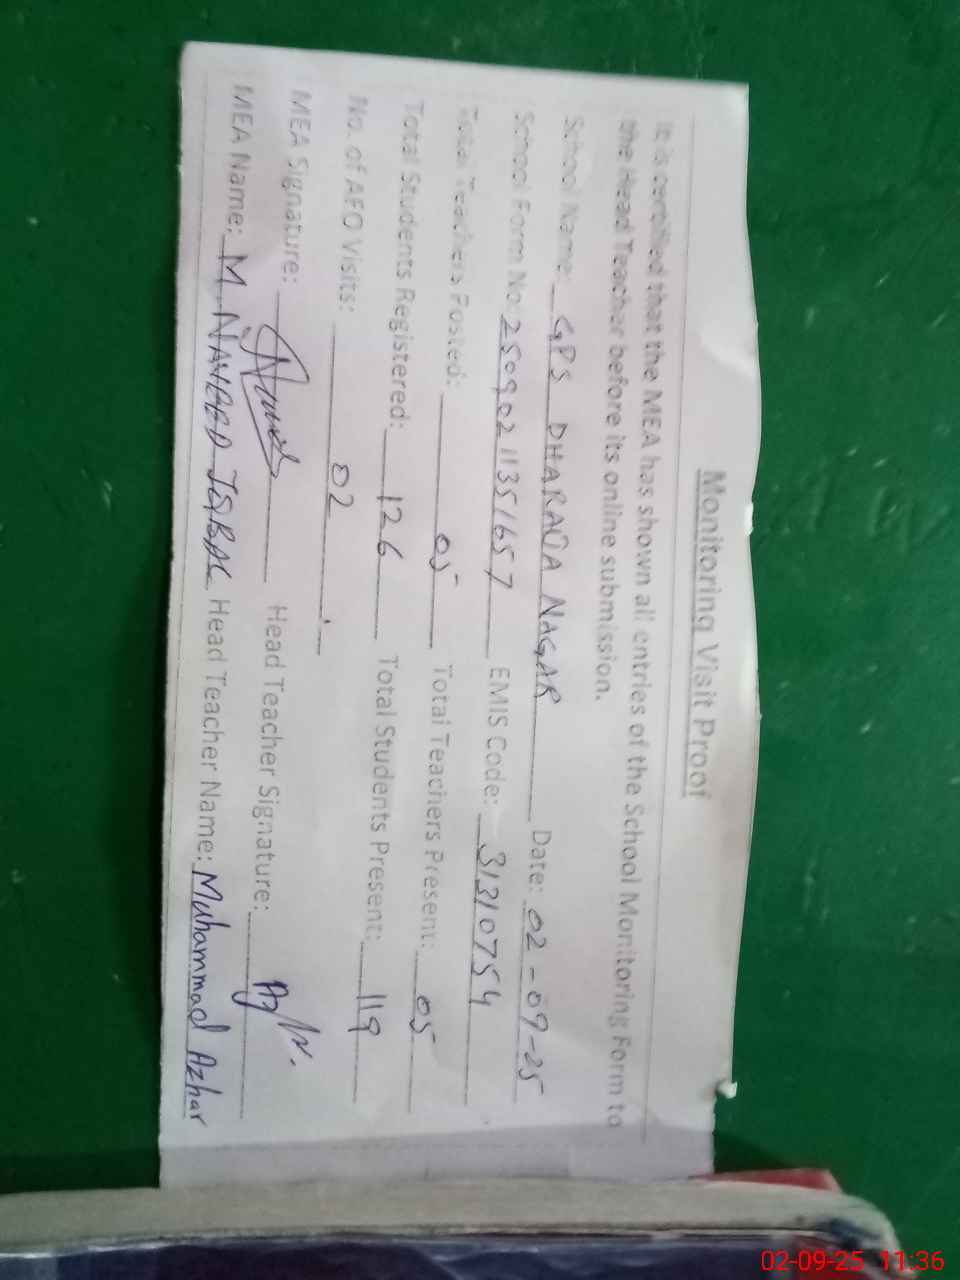 Monitoring Visit Proof
It is certified that the MEA has shown all entries of the School Monitoring Form to
the Head Teacher before its online submission.
School Name: GPS DHARALA NAGAR Date: 02-09-25
School Form No: 2509021135/657 EMIS Code: 31310754
Total Teachers Posted: 05 Total Teachers Present: 05
Total Students Registered: 126 Total Students Present: 119
No. of AFO Visits: 02
MEA Signature: Head Teacher Signature:
MEA Name: M NAVEED IQBAL Head Teacher Name: Muhammad Azhar
02-09-25 11:36